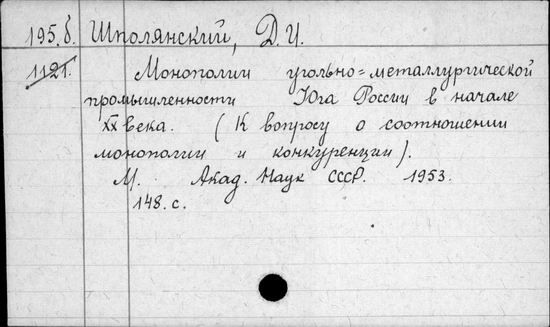 195.б. Шполянский, Д.И.
1121. Монополии угольно=металлургической
промышленности Юга России в начале
XX века. (К вопросу о соотношении
монополии и конкуренции).
М. Акад. Наук СССР. 1953.
148. с.